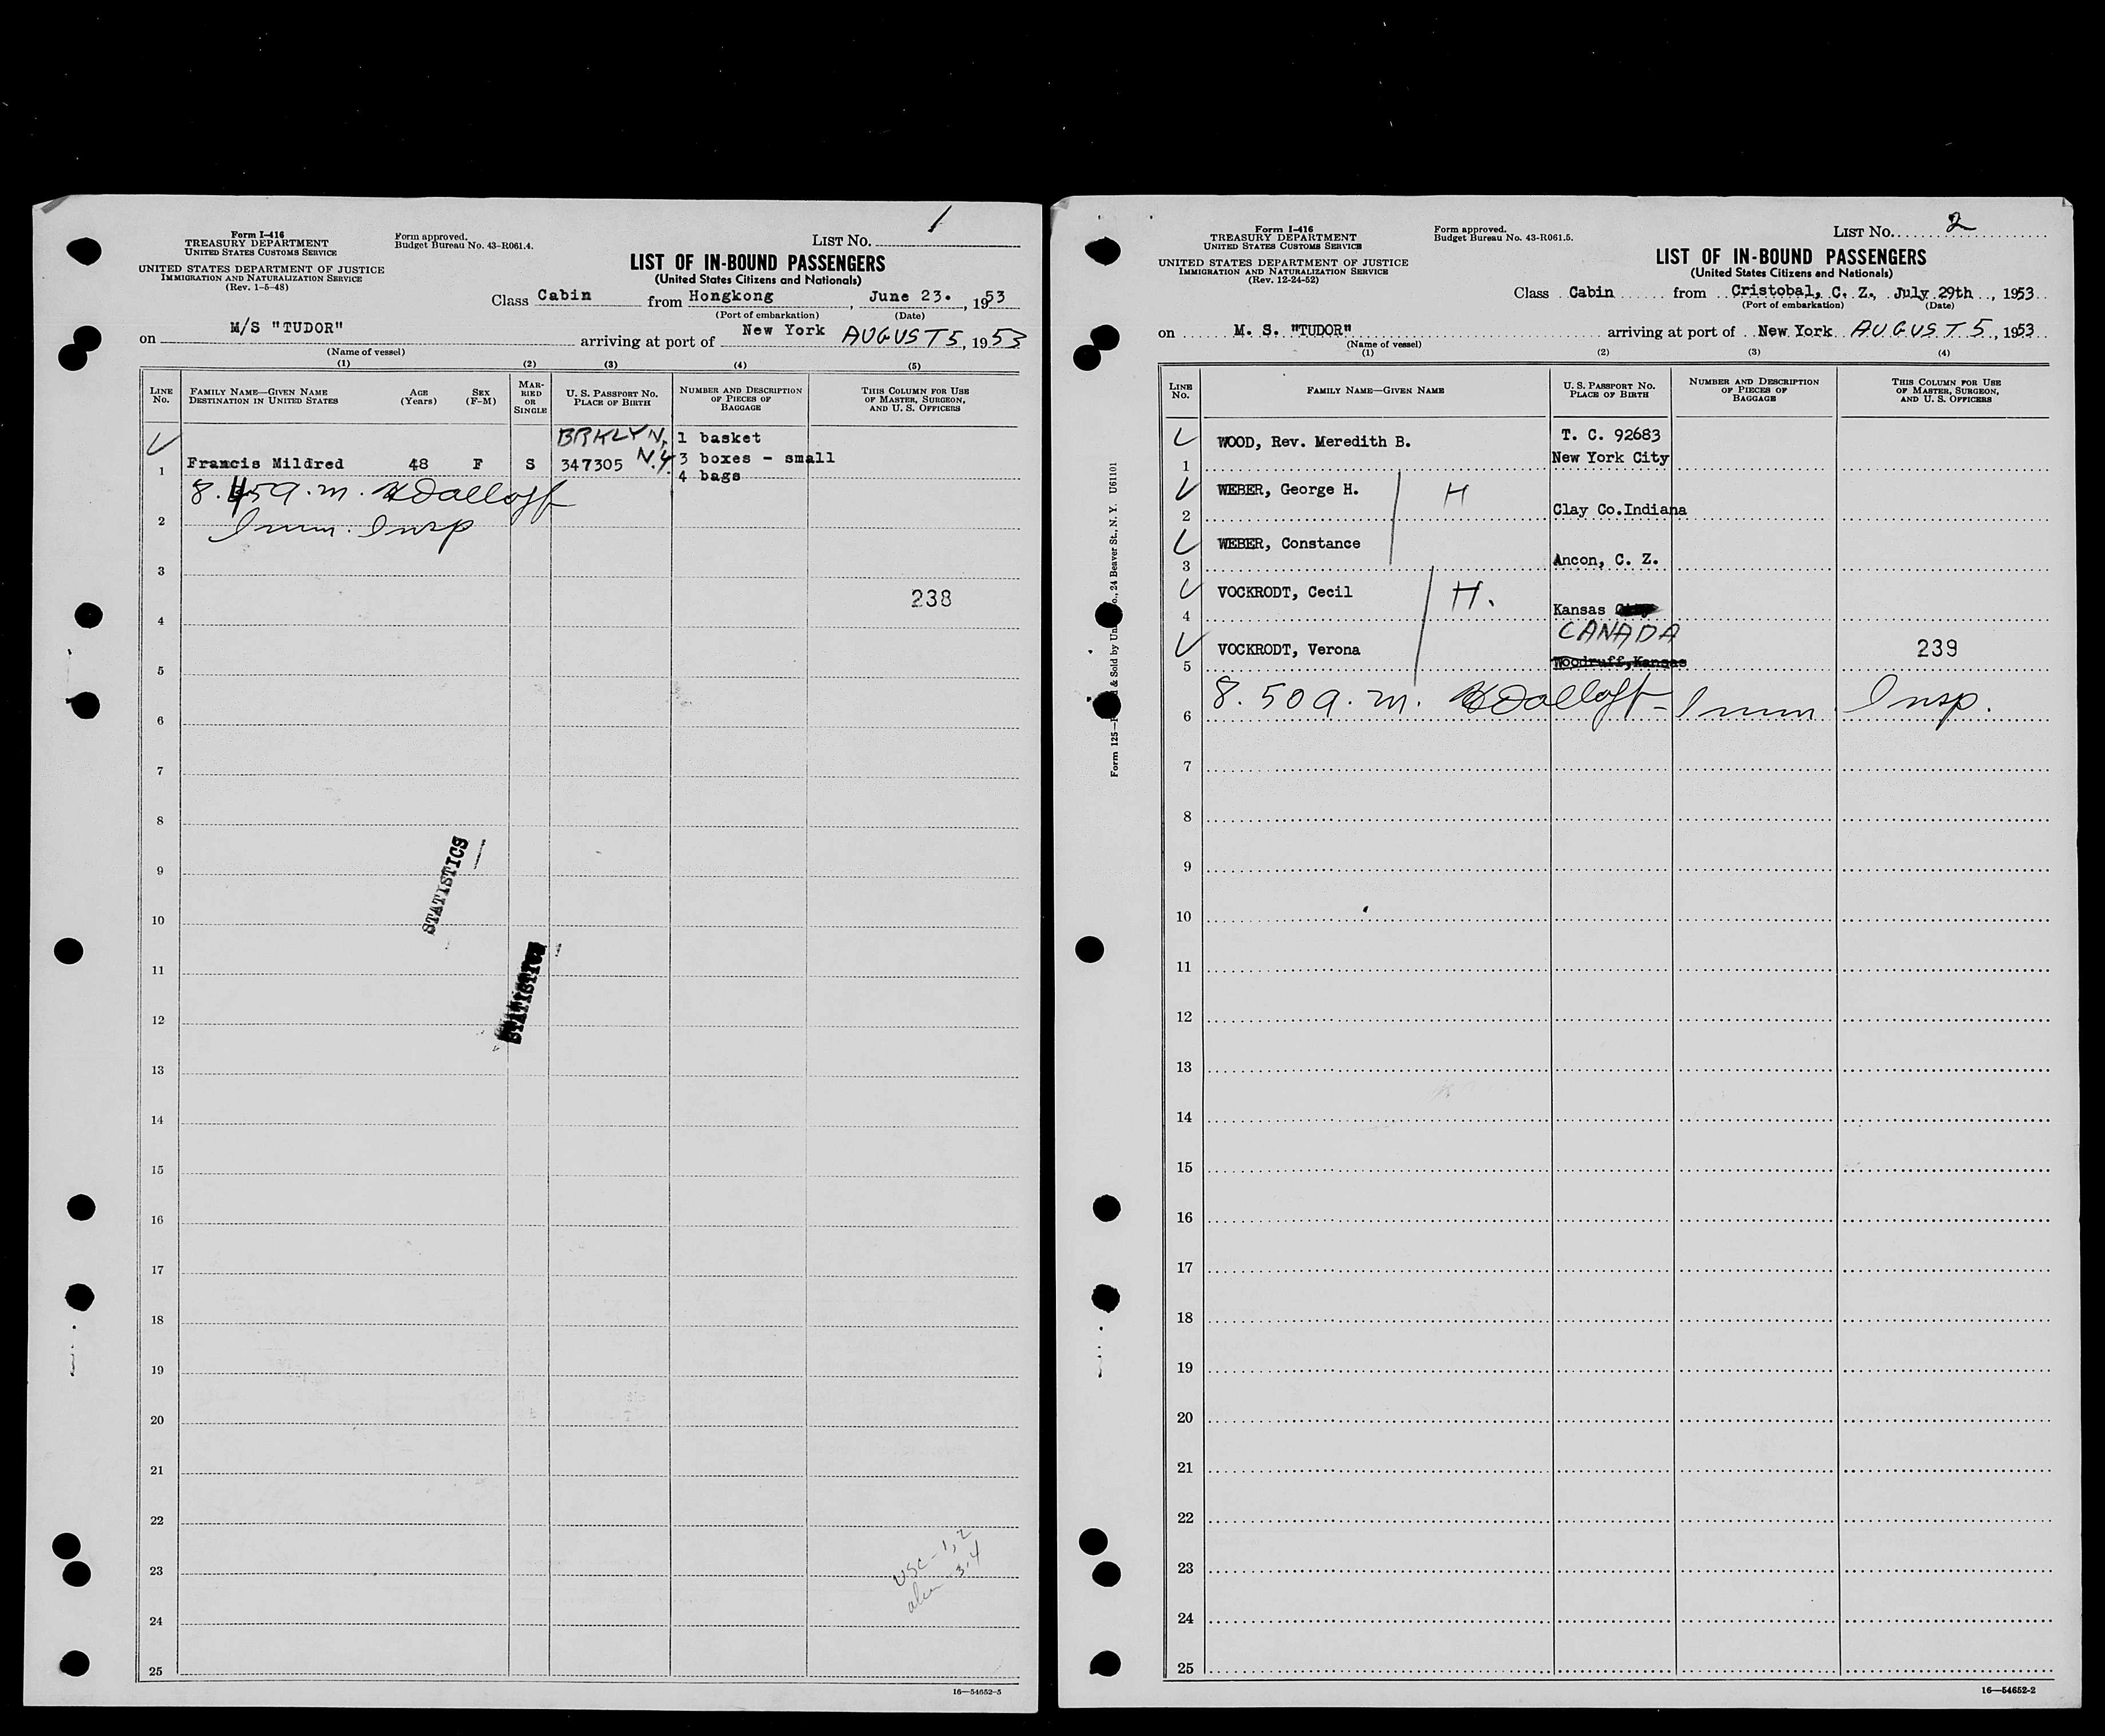 1
Form I-416
TREASURY DEPARTMENT
UNITED STATES CUSTOMS SERVICE
UNITED STATES DEPARTMENT OF JUSTICE
IMMIGRATION AND NATURALIZATION SERVICE
(Rev. 1-5-48)
Form approved.
Budget Bureau No. 43-R061.4.
LIST NO.
LIST OF IN-BOUND PASSENGERS
(United States Citizens and Nationals)
Class Cabin from Hongkong, June 23., 1953
(Port of embarkation) (Date)
on M/S "TUDOR" arriving at port of New York AUGUST 5, 1953
(Name of vessel)
(1) (2) (3) (4) (5)
LINE NO.
FAMILY NAME—GIVEN NAME
DESTINATION IN UNITED STATES
AGE (Years)
SEX (F-M)
MARRIED OR SINGLE
U. S. PASSPORT NO.
PLACE OF BIRTH
NUMBER AND DESCRIPTION OF PIECES OF BAGGAGE
THIS COLUMN FOR USE OF MASTER, SURGEON, AND U. S. OFFICERS
BRKLYN, 1 basket
1 Francis Mildred 48 F S 347305 N.Y. 3 boxes - small
4 bags
8.45 a.m.
2 Imm. Insp
3
238
4
5
6
7
8
STATISTICS
9
10
11
STATISTICS
12
13
14
15
16
17
18
19
20
21
22
USC - 1, 2
23
3.4
24
25
16—54652-5
Form I-416
TREASURY DEPARTMENT
UNITED STATES CUSTOMS SERVICE
UNITED STATES DEPARTMENT OF JUSTICE
IMMIGRATION AND NATURALIZATION SERVICE
(Rev. 12-24-52)
Form approved.
Budget Bureau No. 43-R061.5.
LIST NO. 2
LIST OF IN-BOUND PASSENGERS
(United States Citizens and Nationals)
Class Cabin from Cristobal, C. Z., July 29th, 1953
(Port of embarkation) (Date)
on M. S. "TUDOR" arriving at port of New York AUGUST 5, 1953
(Name of vessel)
(1) (2) (3) (4)
LINE NO.
FAMILY NAME—GIVEN NAME
U. S. PASSPORT NO.
PLACE OF BIRTH
NUMBER AND DESCRIPTION OF PIECES OF BAGGAGE
THIS COLUMN FOR USE OF MASTER, SURGEON, AND U. S. OFFICERS
WOOD, Rev. Meredith B. T. C. 92683
1 New York City
WEBER, George H. H
2 Clay Co.Indiana
WEBER, Constance
3 Ancon, C. Z.
VOCKRODT, Cecil H.
4 Kansas
CANADA
VOCKRODT, Verona 239
5 Woodruff,Kansas
8.50 a.m. Imm. Insp.
6
7
8
9
10
11
12
13
14
15
16
17
18
19
20
21
22
23
24
25
16—54652-2
Form 125— & Sold by 24 Beaver St., N. Y. U61101